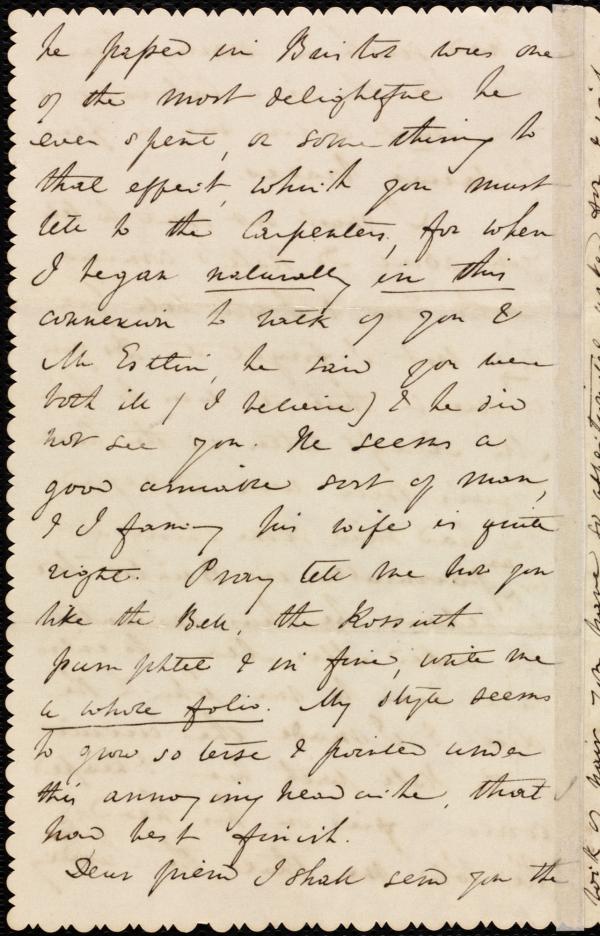 he passed in Bristol was one
of the most delightful he
ever spent, or something to
that effect, which you must
tell to the Carpenters, for when
I began naturally in this
connexion to talk of you &
Mr Estlin, he said you were
both ill (I believe) & he did
not see you. He seems a
good amiable sort of man,
& I fancy his wife is quite
right. Pray tell me how you
like the Bell, the Kossuth
pamphlet & in fine, write me
a whole folio. My style seems
to grow so terse & pointed under
this annoying headache, that
had best finish.
Dear friend I shall send you the